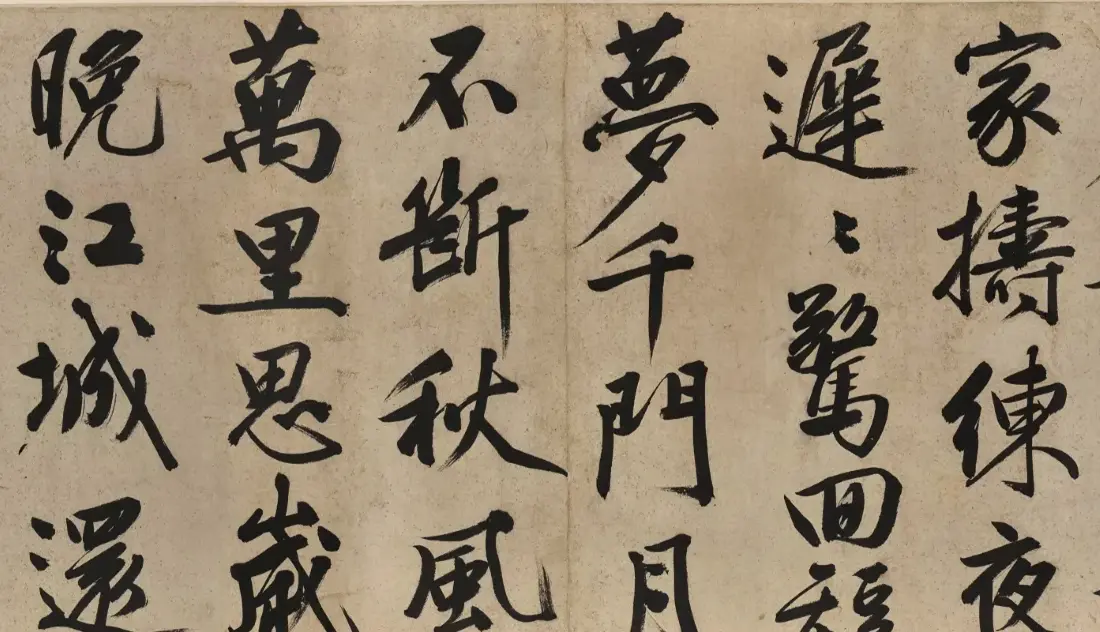 家擣練夜
遲〻驚回短
夢千門月
不斷秋風
萬里思歲
晚江城還